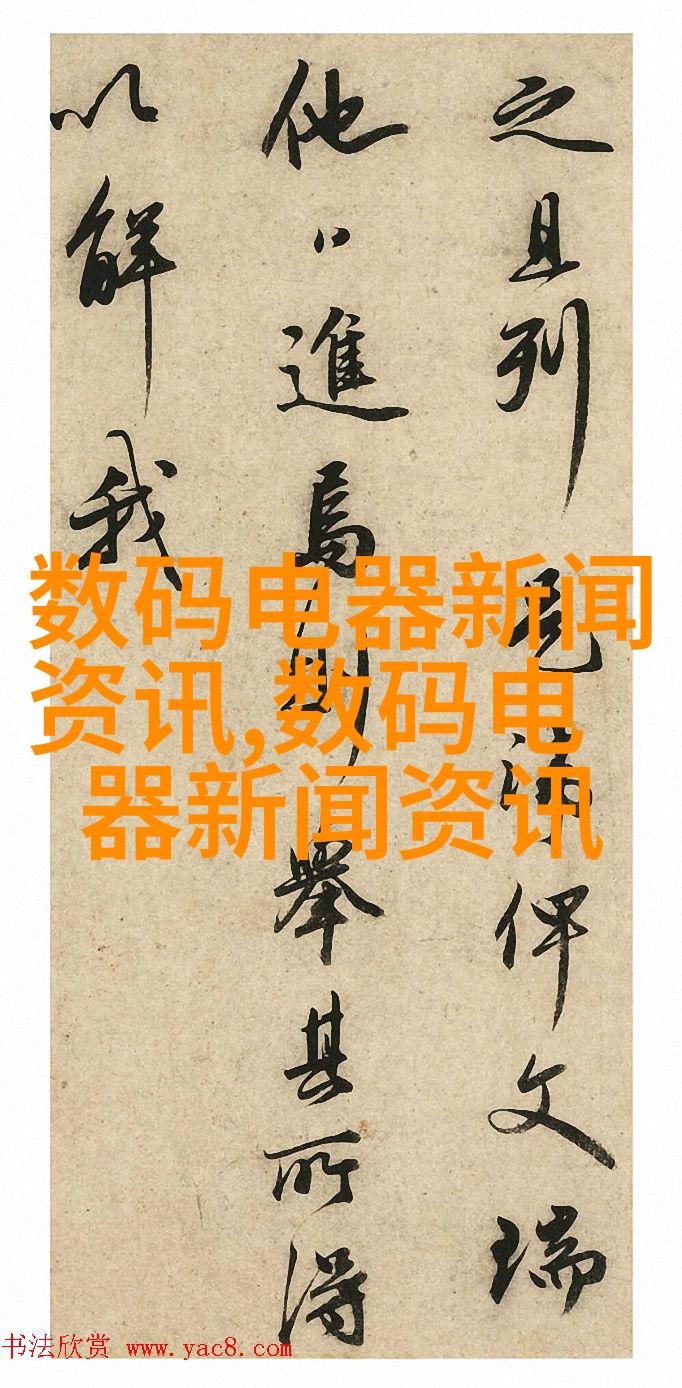 之且列見海俾文瑞
他日進焉則舉其所得
以解我
数码电器新闻
资讯,数码电
器新闻资讯
书法欣赏 www.yac8.com